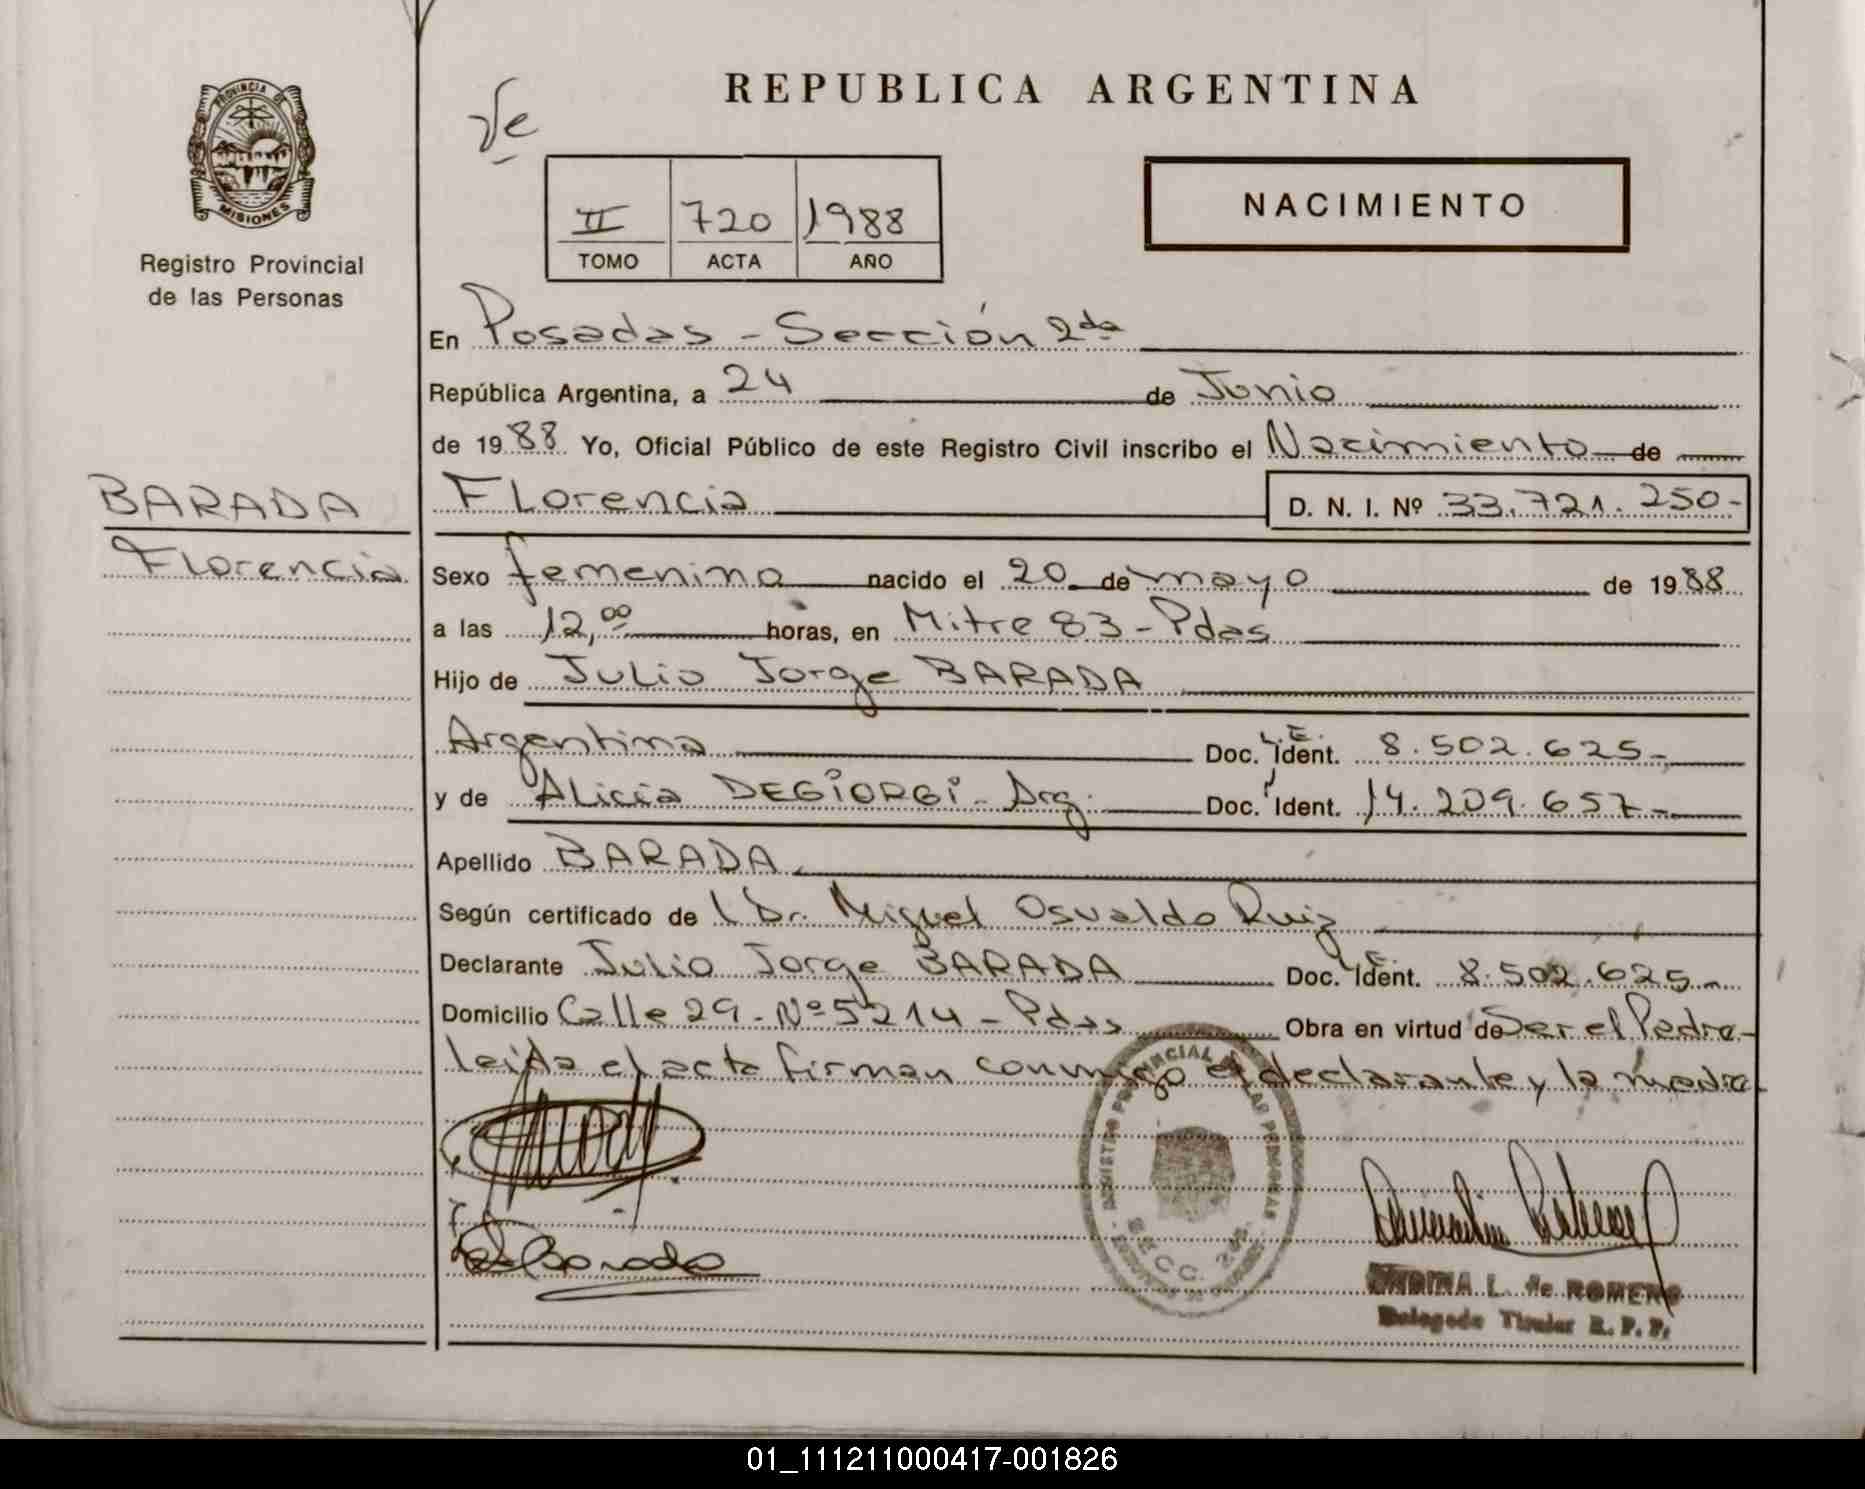 PROVINCIA DE
MISIONES
Registro Provincial
de las Personas
BARADA
Florencia
REPUBLICA ARGENTINA
NACIMIENTO
II 720 1988
TOMO ACTA AÑO
En Posadas - Sección 2da
República Argentina, a 24 de Junio
de 1988 Yo, Oficial Público de este Registro Civil inscribo el Nacimiento de
Florencia D. N. I. Nº 33.721.250-
Sexo femenino nacido el 20 de mayo de 1988
a las 12,00 horas, en Mitre 83 - Pdas
Hijo de Julio Jorge BARADA
Argentina Doc. Ident. L.E. 8.502.625-
y de Alicia DEGIORGI - Arg. Doc. Ident. 14.209.657-
Apellido BARADA
Según certificado de Dr. Miguel Osvaldo Ruiz
Declarante Julio Jorge BARADA Doc. Ident. L.E. 8.502.625-
Domicilio Calle 29 - Nº 5214 - Pdas Obra en virtud de Ser el Padre-
leida el acta firman conmigo el declarante y la madre
SECC. 2da.
L. de ROMERO
Delegada Titular R. P. P.
01_111211000417-001826